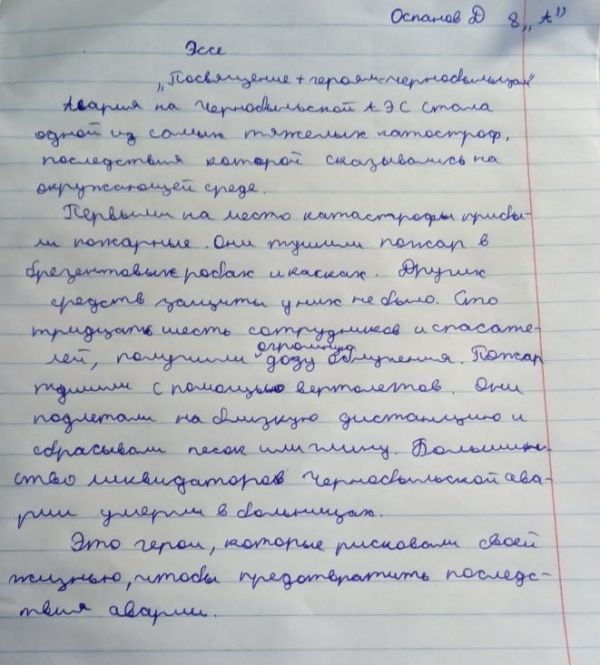 Оспанов Д 8 „А”
Эссе
„Посвящение героям-чернобыльцам“
Авария на Чернобыльской АЭС стала
одной из самых тяжелых катостроф,
последствия которой сказывались на
окружающей среде.
Первыми на место катастрофы прибы-
ли пожарные. Они тушили пожар в
брезентовых робах и касках. Других
средств защиты у них не было. Сто
тридцать шесть сотрудников и спасате-
огромную
лей, получили дозу облучения. Пожар
тушили с помощью вертолетов. Они
подлетали на близкую дистанцию и
сбрасывали песок или глину. Большин-
ство ликвидаторов Чернобыльской ава-
рии умерли в больницах.
Это герои, которые рисковали своей
жизнью, чтобы предотвратить последс-
твия аварии.